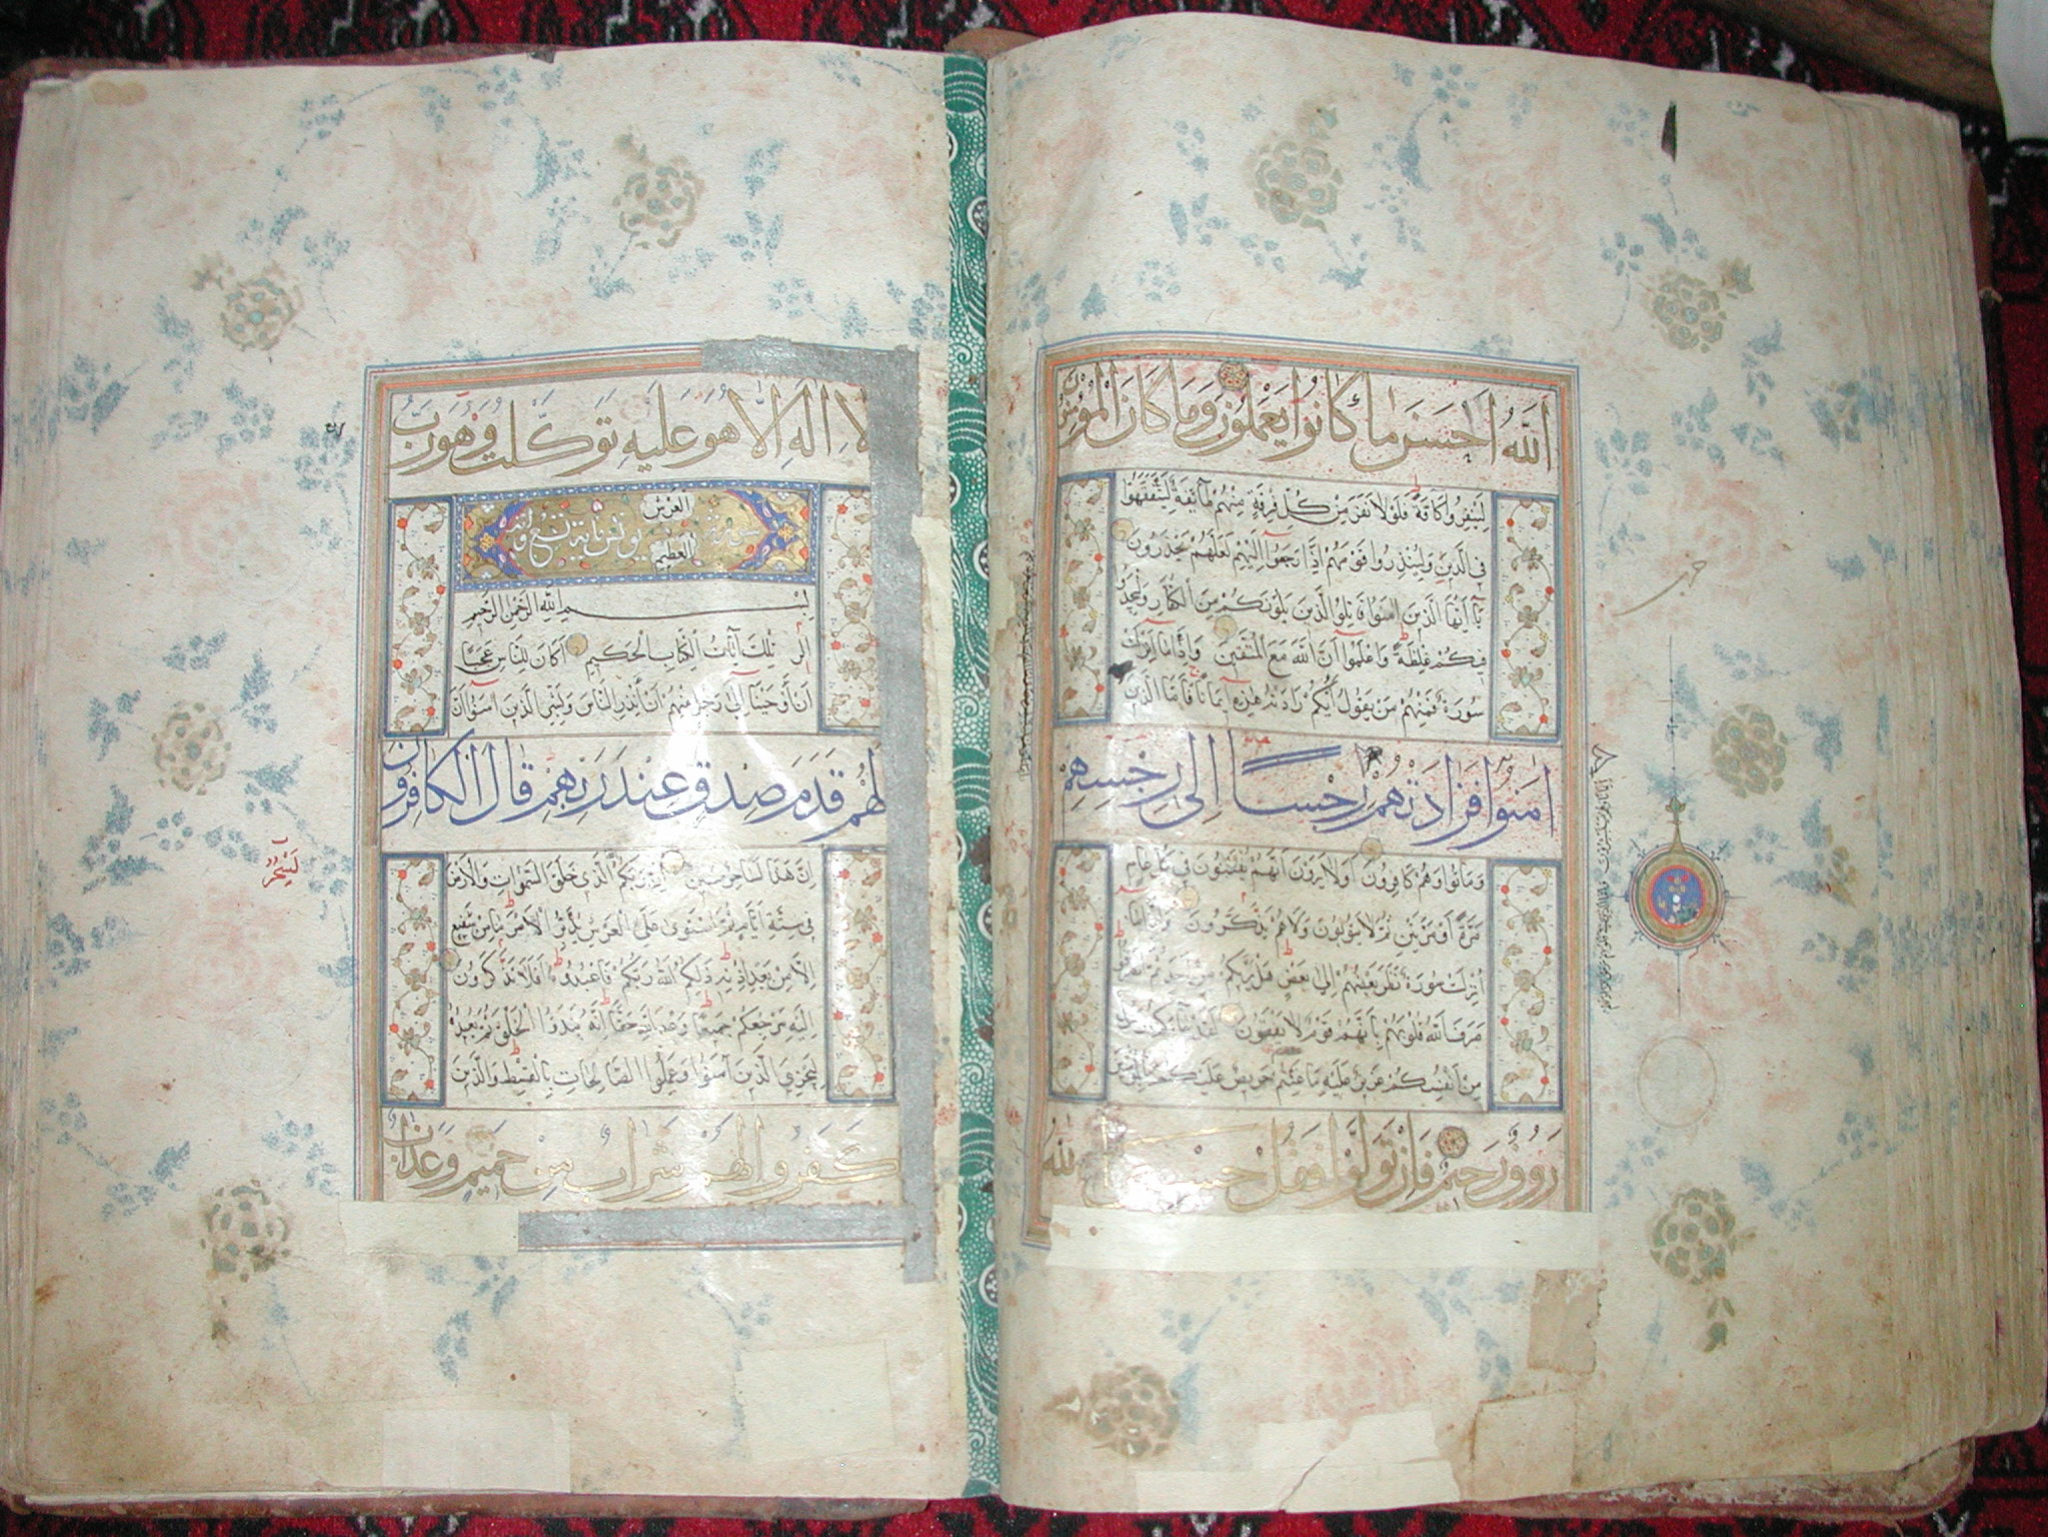 اَللّٰهُ اَحْسَنَ مَا كَانُوا يَعْمَلُونَ وَمَا كَانَ الْمُؤْمِنُونَ
لِيَنْفِرُوا كَافَّةً فَلَوْلَا نَفَرَ مِنْ كُلِّ فِرْقَةٍ مِنْهُمْ طَائِفَةٌ لِيَتَفَقَّهُوا
فِي الدِّينِ وَلِيُنْذِرُوا قَوْمَهُمْ اِذَا رَجَعُوا اِلَيْهِمْ لَعَلَّهُمْ يَحْذَرُونَ
يَا اَيُّهَا الَّذِينَ اٰمَنُوا قَاتِلُوا الَّذِينَ يَلُونَكُمْ مِنَ الْكُفَّارِ وَلْيَجِدُوا
فِيكُمْ غِلْظَةً وَاعْلَمُوا اَنَّ اللّٰهَ مَعَ الْمُتَّقِينَ وَاِذَا مَا اُنْزِلَتْ
سُورَةٌ فَمِنْهُمْ مَنْ يَقُولُ اَيُّكُمْ زَادَتْهُ هٰذِهِ اِيمَانًا فَاَمَّا الَّذِينَ
اٰمَنُوا فَزَادَتْهُمْ رِجْسًا اِلٰى رِجْسِهِمْ
وَمَاتُوا وَهُمْ كَافِرُونَ اَوَلَا يَرَوْنَ اَنَّهُمْ يُفْتَنُونَ فِي كُلِّ عَامٍ
مَرَّةً اَوْ مَرَّتَيْنِ ثُمَّ لَا يَتُوبُونَ وَلَا هُمْ يَذَّكَّرُونَ وَاِذَا مَا
اُنْزِلَتْ سُورَةٌ نَظَرَ بَعْضُهُمْ اِلٰى بَعْضٍ هَلْ يَرٰيكُمْ مِنْ اَحَدٍ ثُمَّ انْصَرَفُوا
صَرَفَ اللّٰهُ قُلُوبَهُمْ بِاَنَّهُمْ قَوْمٌ لَا يَفْقَهُونَ لَقَدْ جَاءَكُمْ رَسُولٌ
مِنْ اَنْفُسِكُمْ عَزِيزٌ عَلَيْهِ مَا عَنِتُّمْ حَرِيصٌ عَلَيْكُمْ بِالْمُؤْمِنِينَ
رَؤُوفٌ رَحِيمٌ فَاِنْ تَوَلَّوْا فَقُلْ حَسْبِيَ اللّٰهُ
حزب
لَا اِلٰهَ اِلَّا هُوَ عَلَيْهِ تَوَكَّلْتُ وَهُوَ رَبُّ
الْعَرْشِ
الْعَظِيمِ
سورة يونس مائة وتسع
بِسْمِ اللهِ الرَّحْمٰنِ الرَّحِيمِ
الٓرٰ تِلْكَ اٰيَاتُ الْكِتَابِ الْحَكِيمِ اَكَانَ لِلنَّاسِ عَجَبًا
اَنْ اَوْحَيْنَا اِلٰى رَجُلٍ مِنْهُمْ اَنْ اَنْذِرِ النَّاسَ وَبَشِّرِ الَّذِينَ اٰمَنُوا اَنَّ
لَهُمْ قَدَمَ صِدْقٍ عِنْدَ رَبِّهِمْ قَالَ الْكَافِرُونَ
اِنَّ هٰذَا لَسَاحِرٌ مُبِينٌ اِنَّ رَبَّكُمُ الَّذِي خَلَقَ السَّمٰوَاتِ وَالْاَرْضَ
فِي سِتَّةِ اَيَّامٍ ثُمَّ اسْتَوٰى عَلَى الْعَرْشِ يُدَبِّرُ الْاَمْرَ مَا مِنْ شَفِيعٍ
اِلَّا مِنْ بَعْدِ اِذْنِهِ ذٰلِكُمُ اللّٰهُ رَبُّكُمْ فَاعْبُدُوهُ اَفَلَا تَذَكَّرُونَ
اِلَيْهِ مَرْجِعُكُمْ جَمِيعًا وَعْدَ اللّٰهِ حَقًّا اِنَّهُ يَبْدَؤُا الْخَلْقَ ثُمَّ يُعِيدُهُ
لِيَجْزِيَ الَّذِينَ اٰمَنُوا وَعَمِلُوا الصَّالِحَاتِ بِالْقِسْطِ وَالَّذِينَ
كَفَرُوا لَهُمْ شَرَابٌ مِنْ حَمِيمٍ وَعَذَابٌ
لَسِحْرٌ